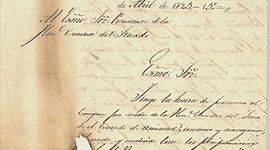 de Abril de 1825-15-
Al Exmo. Sor. Presidente de la
Hon. Camara del Senado
Exmo. Sor.
Tengo la honra de presentar al
Congreso por medio de la Hon. Camara del Sena
do el tratado de amistad, comercio y navegacion